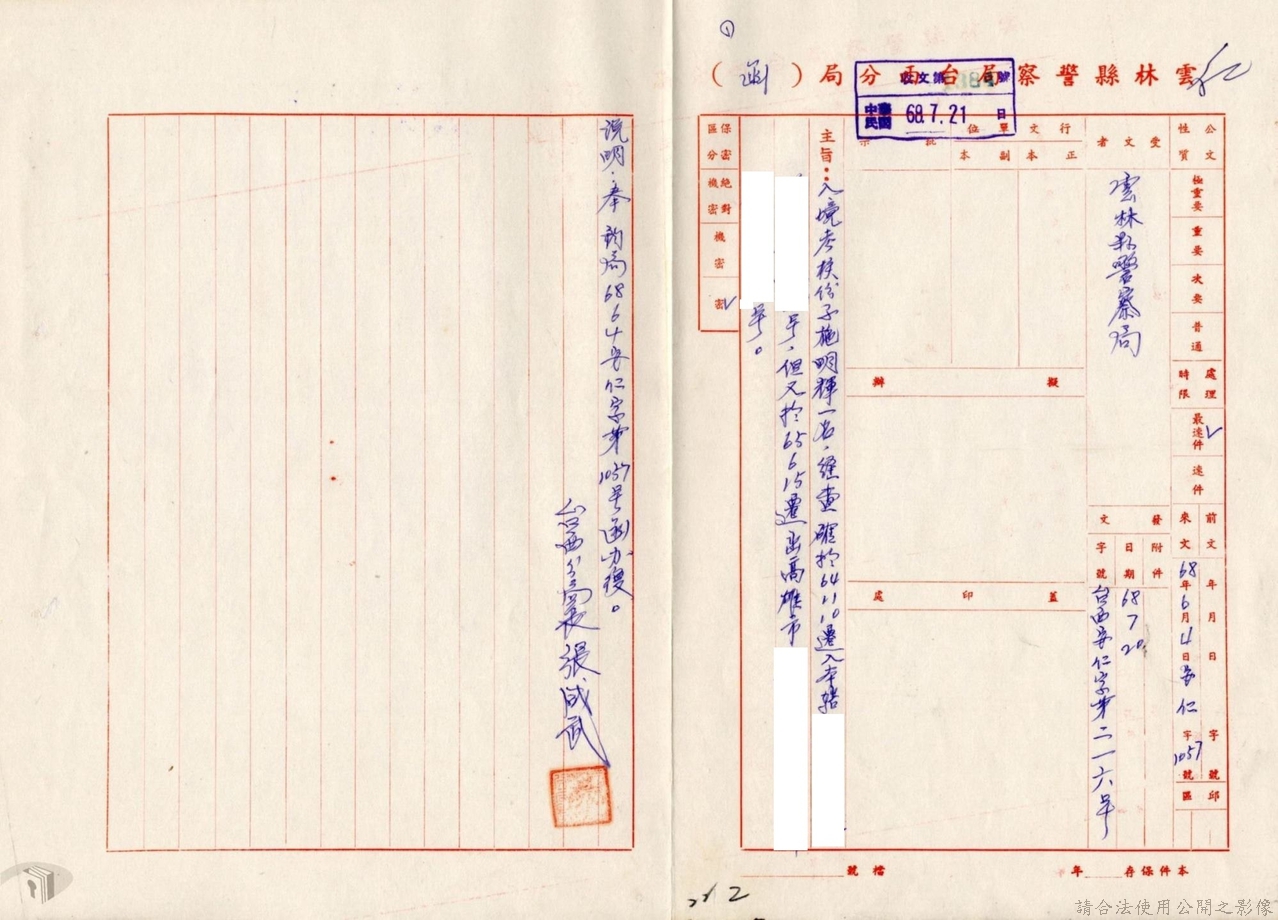 ①
雲林縣警察局台西分局（函）
收文第 號
中華民國 68.7.21 日
公文性質
極重要
重要
次要
普通
處理時限
最速件 ✓
速件
前文 年 月 日 字 號
來文 68年6月4日安仁字1057號
郵區
受文者
雲林縣警察局
發文
附件
日期 68 7 20
字號 台西安仁字第二一六号
行文單位
正本
副本
批示
擬辦
蓋印處
主旨：入境考核份子施明輝一名，經查確於64 11 10遷入本轄
号，但又於65 6 15遷出高雄市
号。
保密區分
絕對機密
機密
密 ✓
本件保存 年
檔號
說明：奉 鈞局68 6 4安仁字第1057号函办復。
台西分局長 張成武
2
請合法使用公開之影像